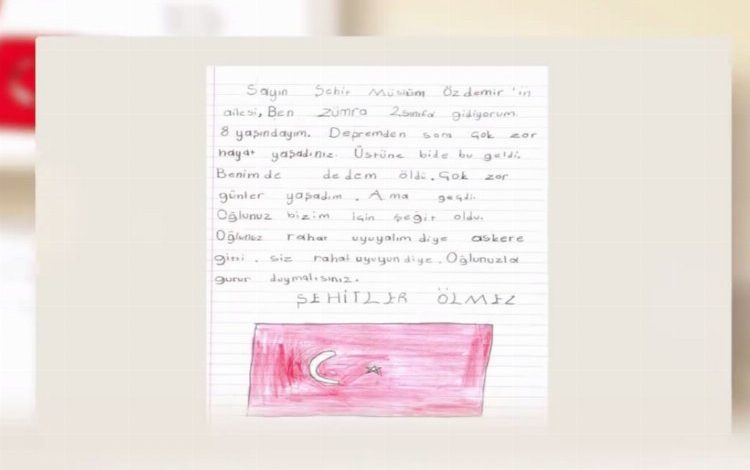 Sayın Şehir Müslüm Özdemir'in
ailesi, Ben Zümra 2.sınıfa gidiyorum.
8 yaşındayım. Depremden sora çok zor
hayat yaşadınız. Üstüne bide bu geldi.
Benim de dedem öldi. Çok zor
günler yaşadım. Ama geçdi.
Oğlunuz bizim için şeğit oldu.
Oğlunuz rahat uyuyalım diye askere
gitti. siz rahat uyuyun diye. Oğlunuzla
gurur duymalısınız.
ŞEHİTLER ÖLMEZ